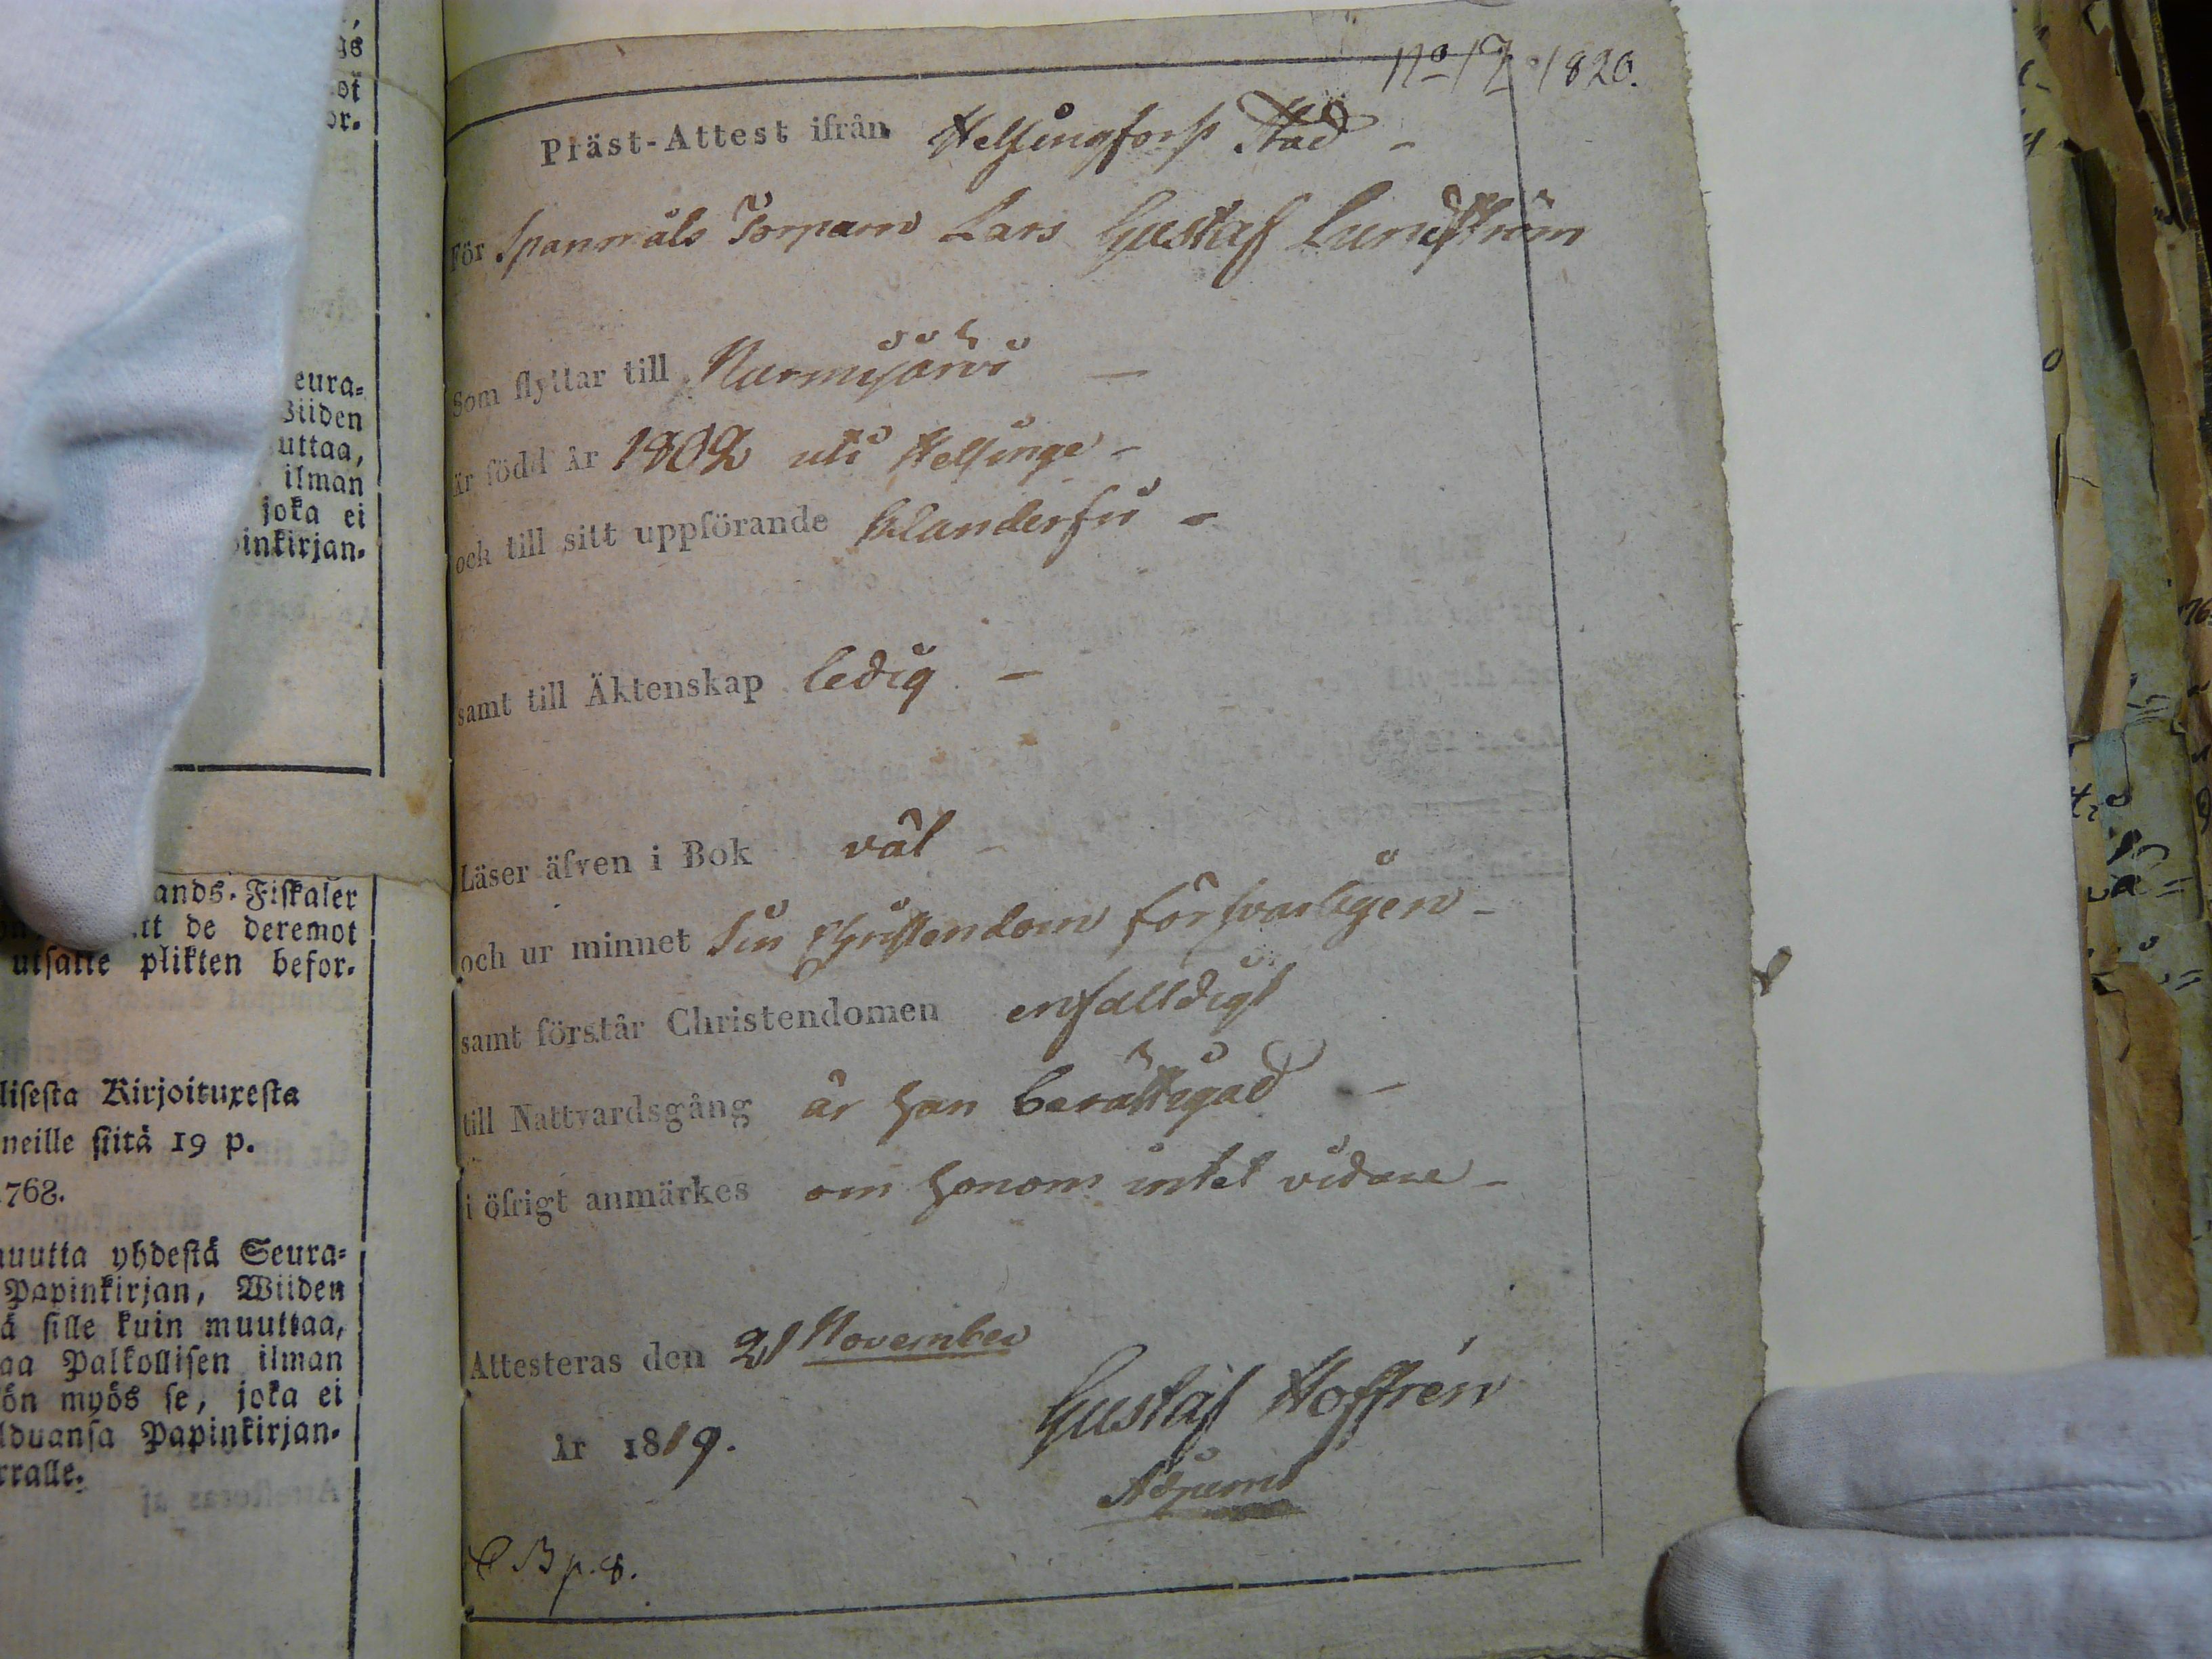 gs
ot
or.
eura-
Wiiden
uttaa,
ilman
joka ei
inkirjan-
ands-Fiskaler
att de deremot
utsatte plikten befor-
lisesta Kirjoituxesta
neille siitä 19 p.
1768.
muutta yhdestä Seura-
Papinkirjan, Wiiden
ä sille kuin muuttaa,
aa Palkollisen ilman
ön myös se, joka ei
lduansa Papinkirjan-
rralle.
No 17 1820.
Präst-Attest ifrån Helsingfors Stad -
För Spannmåls Torparn Lars Gustaf Lundström
Som flyttar till Nurmijärvi —
är född år 1802 uti Helsinge -
och till sitt uppförande klanderfri -
samt till Äktenskap ledig -
Läser äfven i Bok väl -
och ur minnet Sin Christendom försvarligen -
samt förstår Christendomen enfalldigt
till Nattvardsgång är han berättigad -
i öfrigt anmärkes om honom intet vidare -
Attesteras den 21 November
år 1819.
Gustaf Hoffrén
Adjunct
C B p. 8.